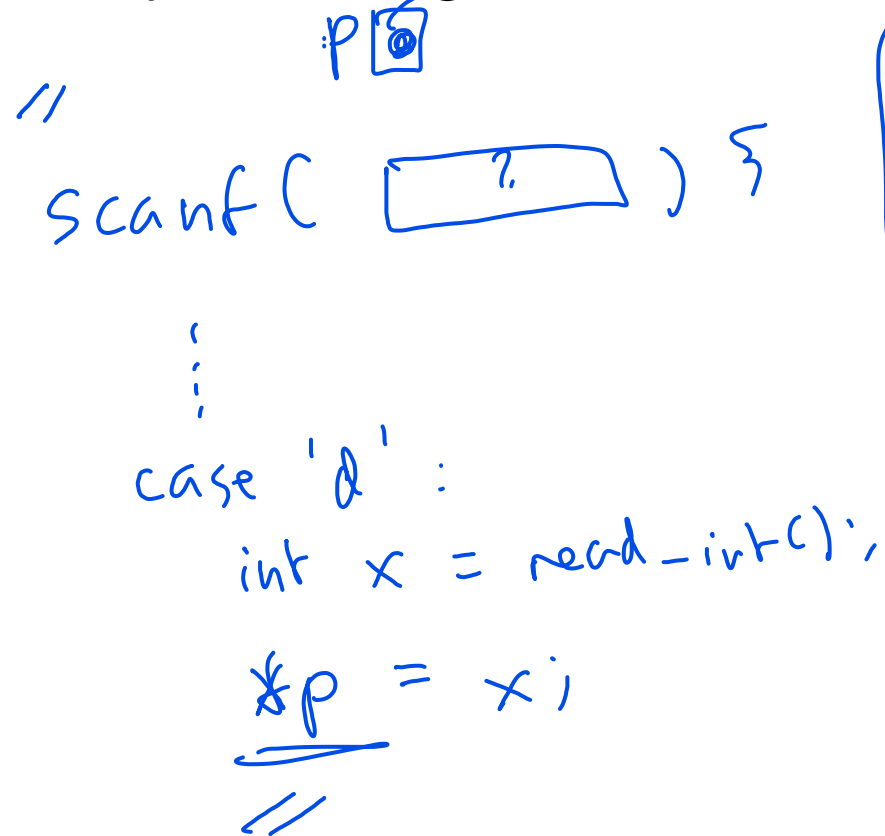 :p
scanf( ? ) {
case 'd' :
int x = read_int();
*p = x;